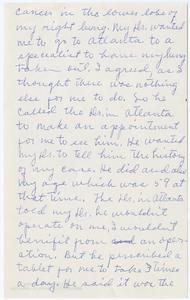 cancer in the lower lobe of
my right lung. My Drs. wanted
me to go to Atlanta to a
specialist to have my lung
taken out. I agreed, as I
thought there was nothing
else for me to do. So he
called the Drs. in Atlanta
to make an appointment
for me to see him. He wanted
my Drs. to tell him the history
of my case. He did and also
my age which was 59 at
that time. The Drs. in Atlanta
told my Drs. he wouldn't
operate on me, I wouldn't
benifit from an oper-
ation. But he perscribed a
tablet for me to take 3 times
a day. He said it was the